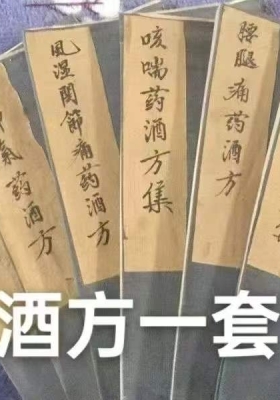 腰腿痛药酒方
咳喘药酒方集
风湿関節痛药酒方
氣药酒方
酒方一套